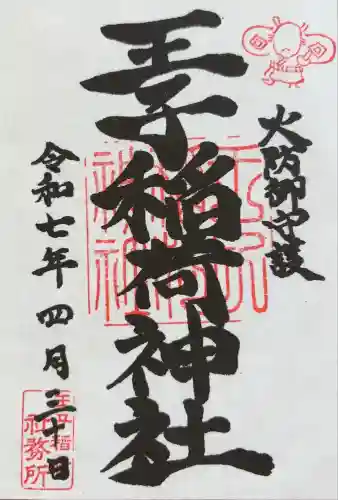 火防御守護
王子稲荷神社
令和七年四月三十日
王子稲荷
社務所